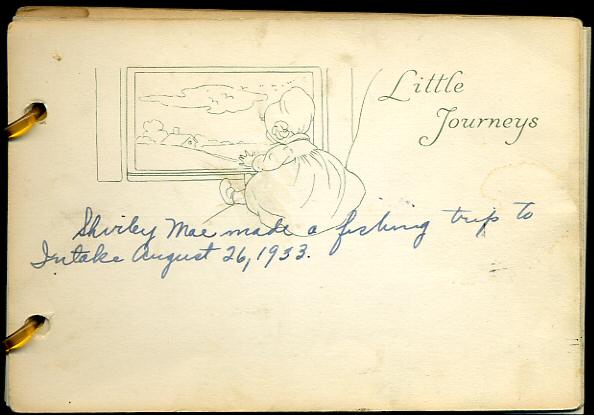 Little
Journeys
Shirley Mae made a fishing trip to
Intake August 26, 1933.